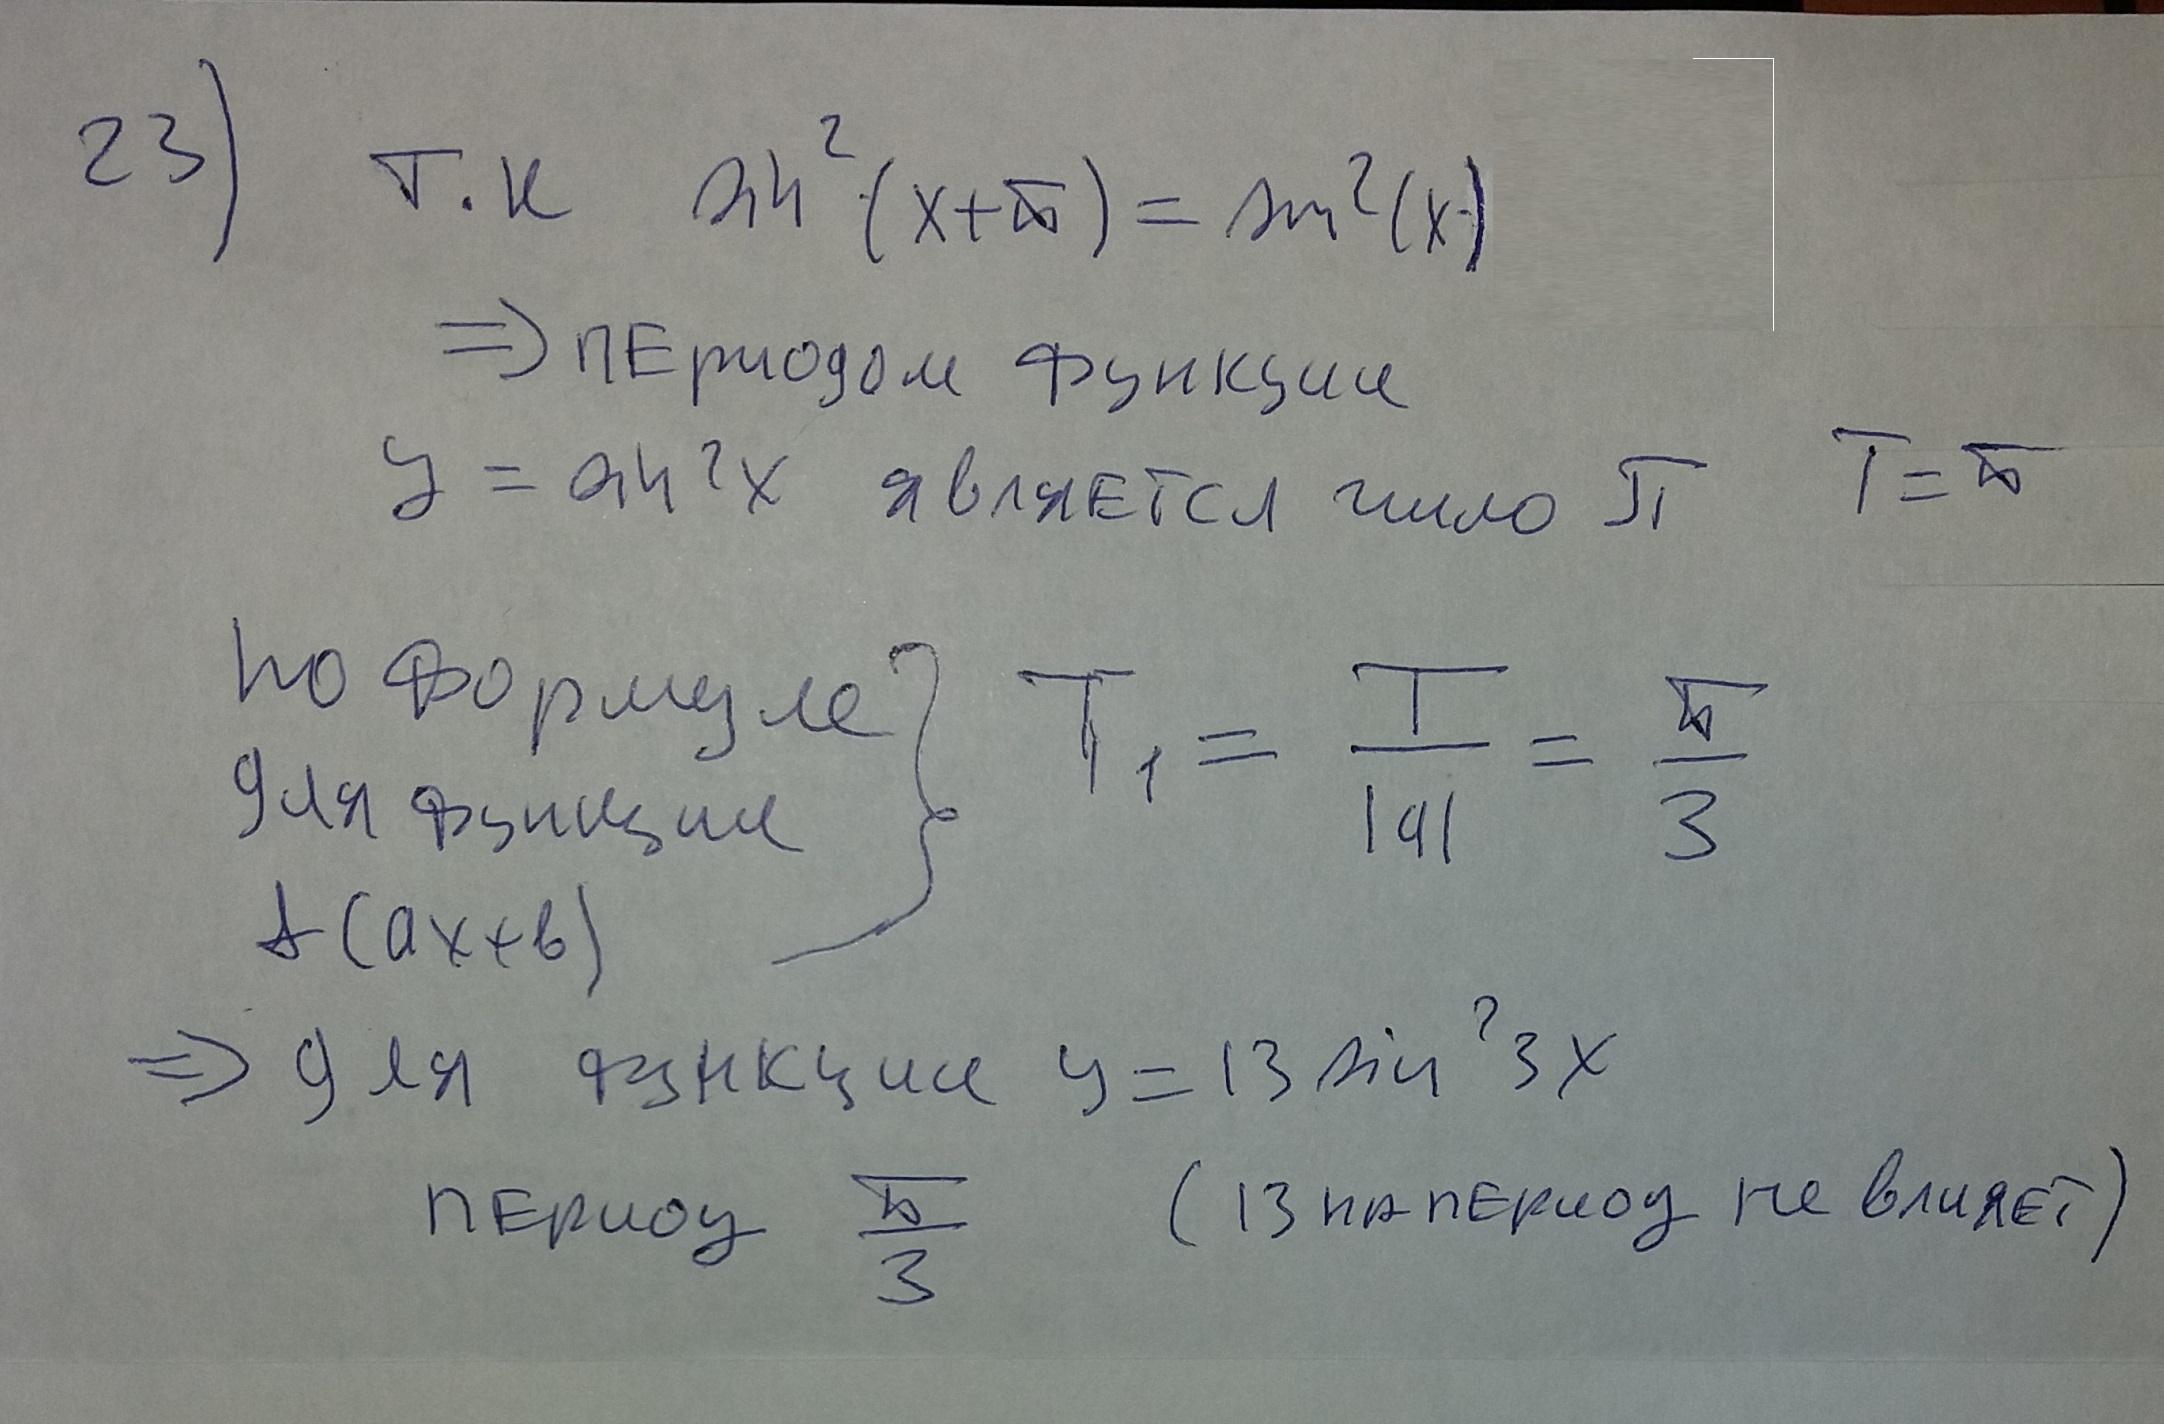 23) Т.к sin²(x+π) = sin²(x)
=> периодом функции
y = sin²x является число π T=π
по формуле
для функции
f(ax+b)
} T₁ = T/|a| = π/3
=> для функции y=13 sin²3x
период π/3 (13 на период не влияет)